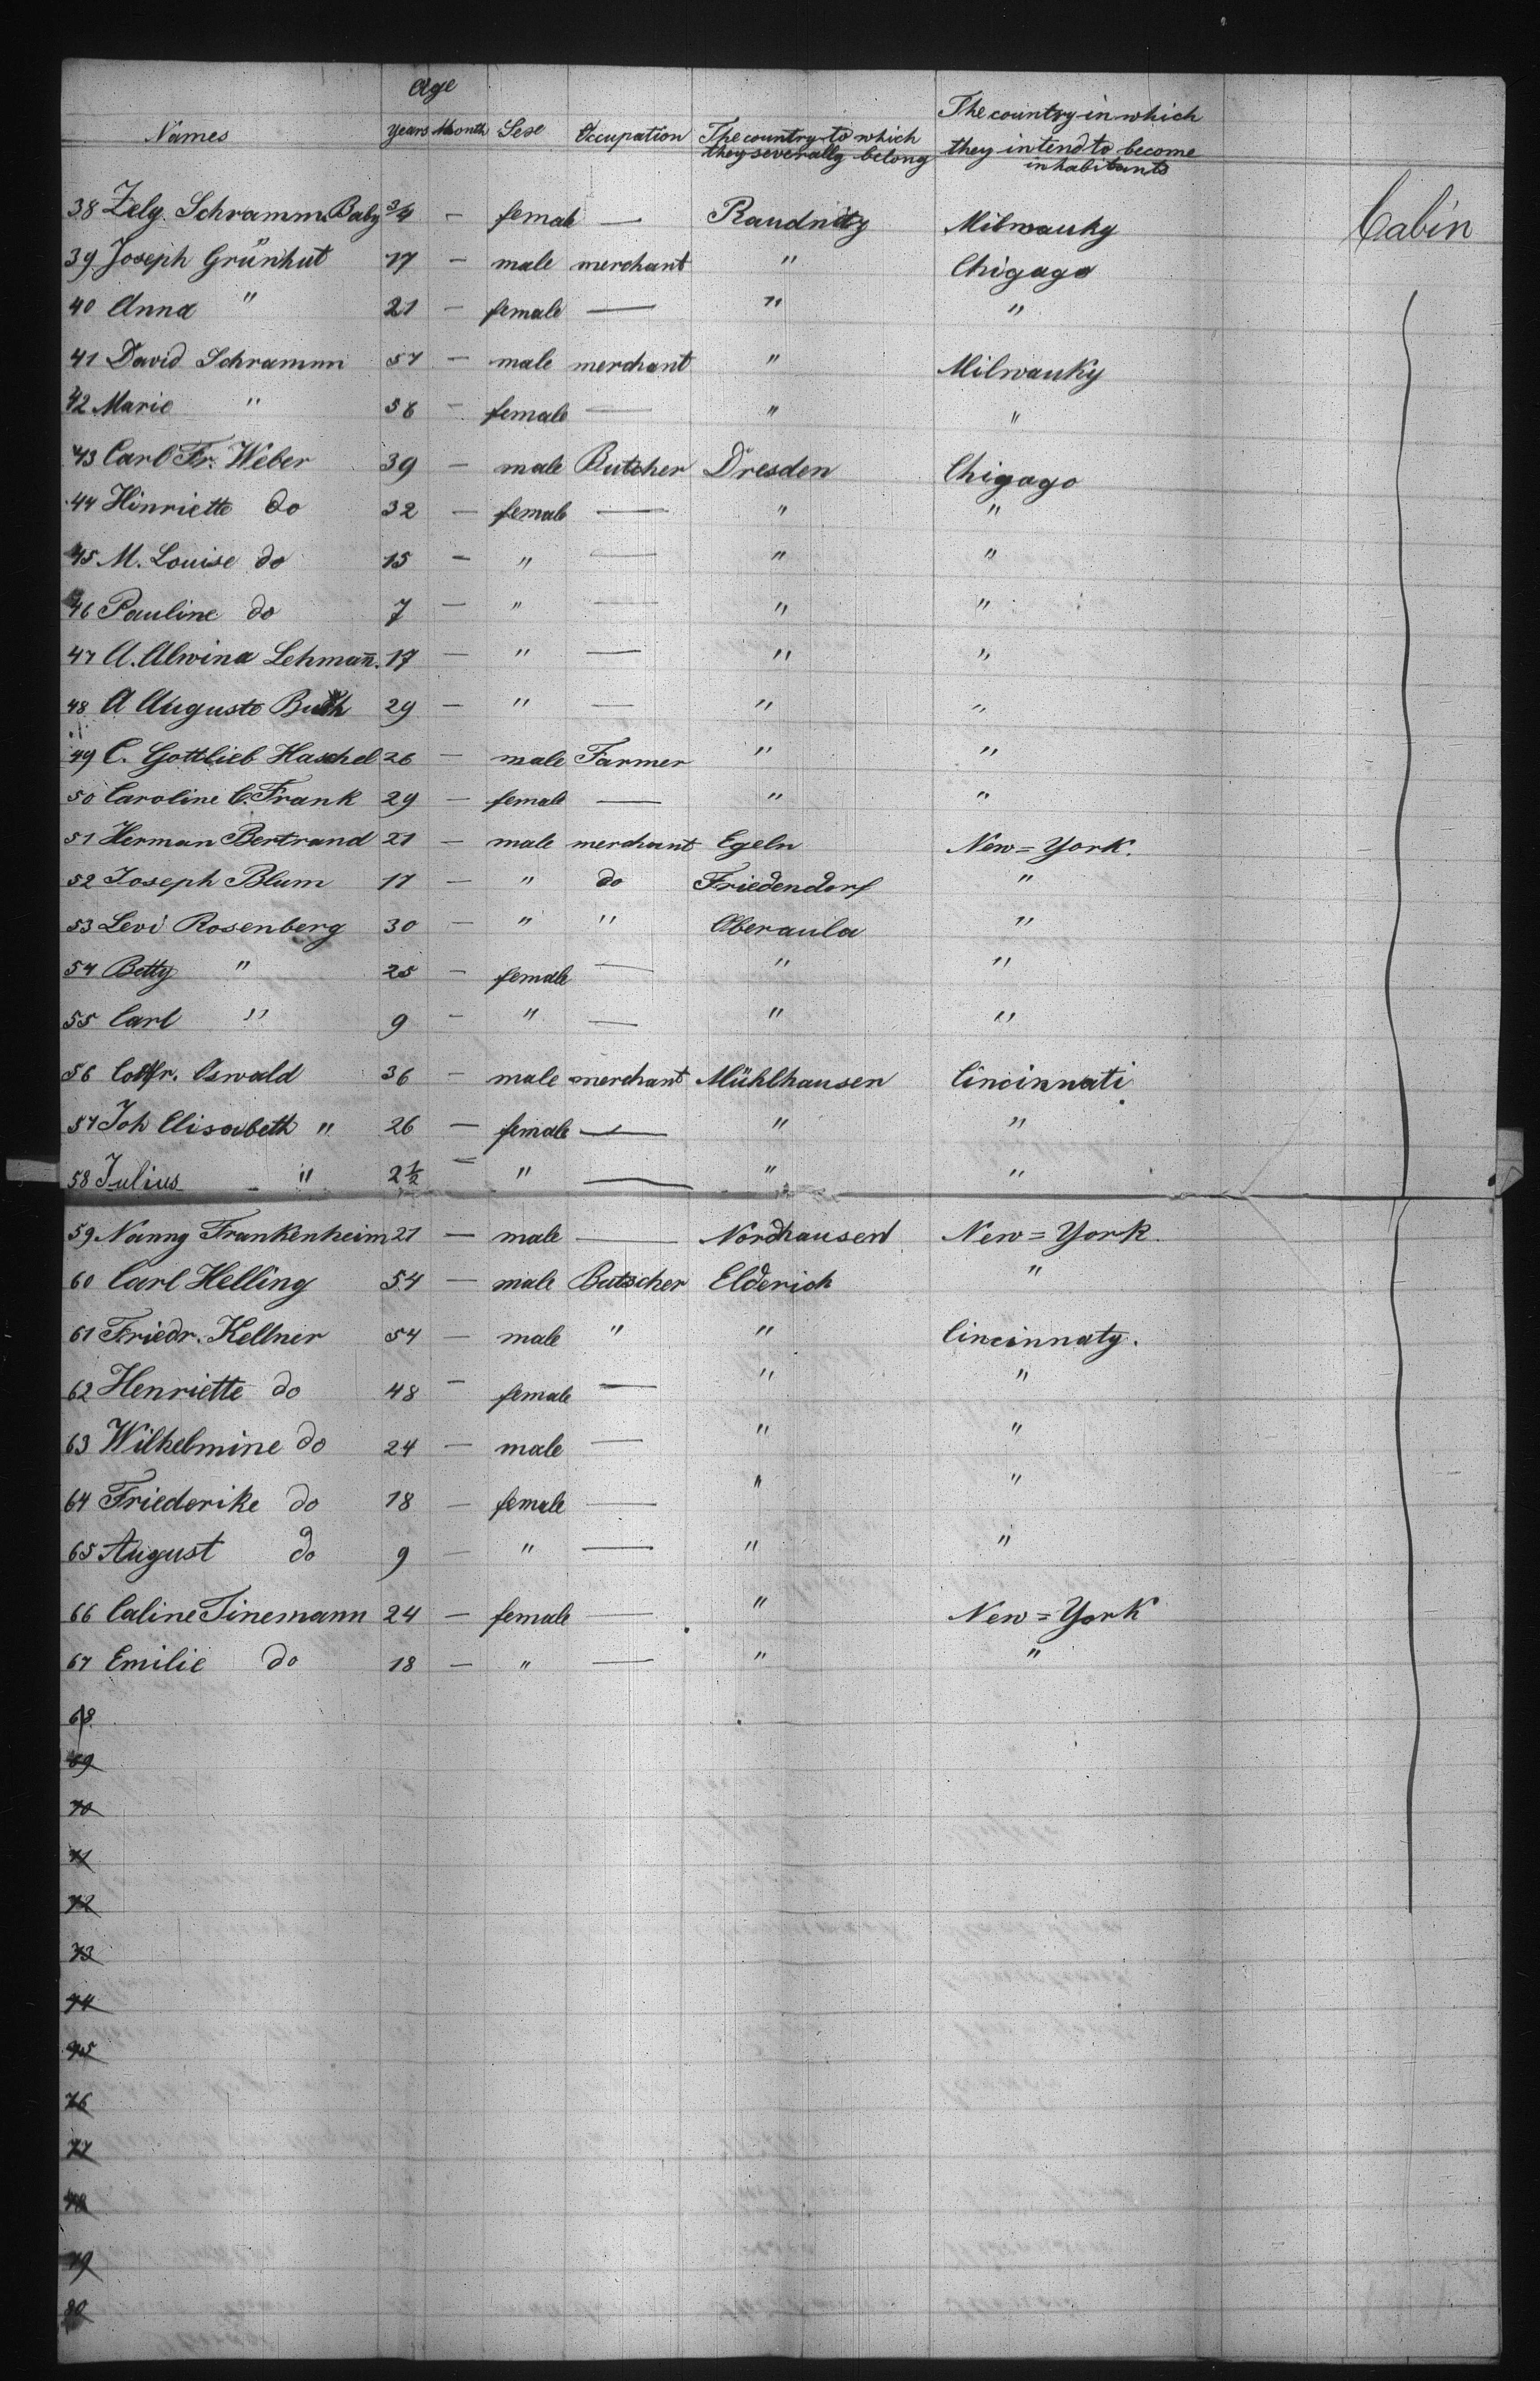 Age
Names Years Month Sexe Occupation The country to which they severally belong The country in which they intend to become inhabitants
38 Zely. Schramm Baby 3/4 — female — Raudnitz Milwauky Cabin
39 Joseph Grünhut 17 — male merchant " Chigago
40 Anna " 21 — female — " "
41 David Schramm 57 — male merchant " Milwauky
42 Marie " 58 — female — " "
43 Carl Fr. Weber 39 — male Butcher Dresden Chigago
44 Hinriette do 32 — female — " "
45 M. Louise do 15 — " — " "
46 Pauline do 7 — " — " "
47 A. Alwina Lehmañ. 17 — " — " "
48 A Auguste 29 — " — " "
49 C. Gottlieb Haschel 26 — male Farmer " "
50 Caroline C. Frank 29 — female — " "
51 Herman Bertrand 21 — male merchant Egeln New=York.
52 Joseph Blum 17 — " do Friedendorf "
53 Levi Rosenberg 30 — " " Oberaula "
54 Betty " 25 — female — " "
55 Carl " 9 — " — " "
56 Oswald 36 — male merchant Mühlhausen Cincinnati
57 Joh Elisabeth " 26 — female — " "
58 Julius " 2 1/2 — " — " "
59 Nanny Frankenheim 21 — male — Nordhausen New=York.
60 Carl Helling 54 — male Butscher Elderich "
61 Friedr. Kellner 54 — male " " Cincinnaty.
62 Henriette do 48 — female — " "
63 Wilhelmine do 24 — male — " "
64 Friederike do 18 — female — " "
65 August do 9 — " — " "
66 Caline Tinemann 24 — female — " New=York
67 Emilie do 18 — " — " "
68
69
70
71
72
73
74
75
76
77
78
79
80